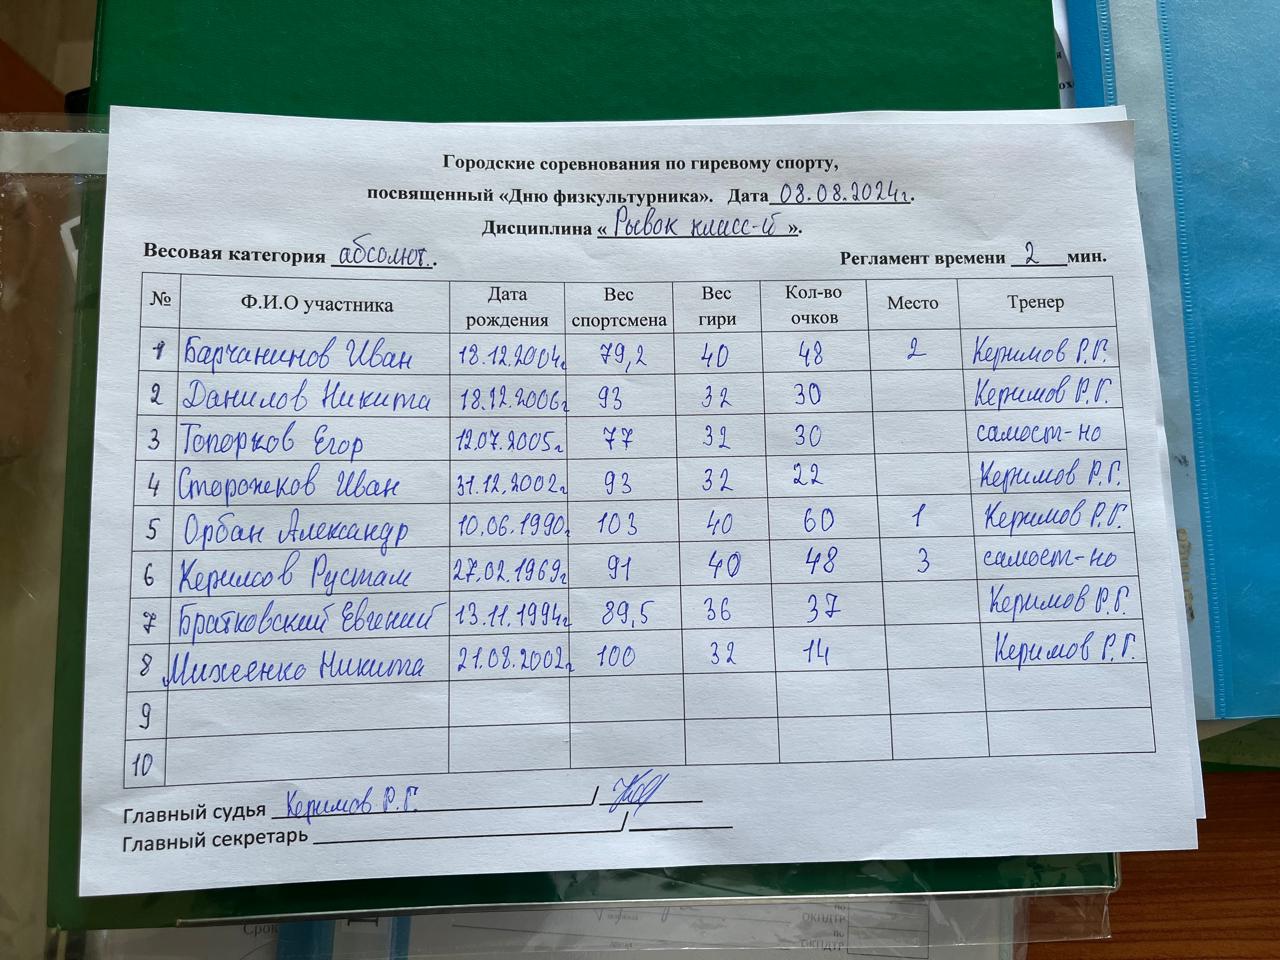 Городские соревнования по гиревому спорту,
посвященный «Дню физкультурника». Дата 08.08.2024г.
Дисциплина « Рывок класс-й ».
Весовая категория абсолют.. Регламент времени 2 мин.
№ Ф.И.О участника Дата рождения Вес спортсмена Вес гири Кол-во очков Место Тренер
1 Барчанинов Иван 18.12.2004г 79,2 40 48 2 Керимов Р.Г.
2 Данилов Никита 18.12.2006г 93 32 30 Керимов Р.Г.
3 Топорков Егор 12.07.2005г 77 32 30 самост-но
4 Сторожков Иван 31.12.2002г 93 32 22 Керимов Р.Г.
5 Орбан Александр 10.06.1990г 103 40 60 1 Керимов Р.Г.
6 Керимов Рустам 27.02.1969г 91 40 48 3 самост-но
7 Братковский Евгений 13.11.1994г 89,5 36 37 Керимов Р.Г.
8 Михеенко Никита 21.08.2002г 100 32 14 Керимов Р.Г.
9
10
Главный судья Керимов Р.Г. /
Главный секретарь /
Срок
по
ОКПДТР
по
ОКПДТР